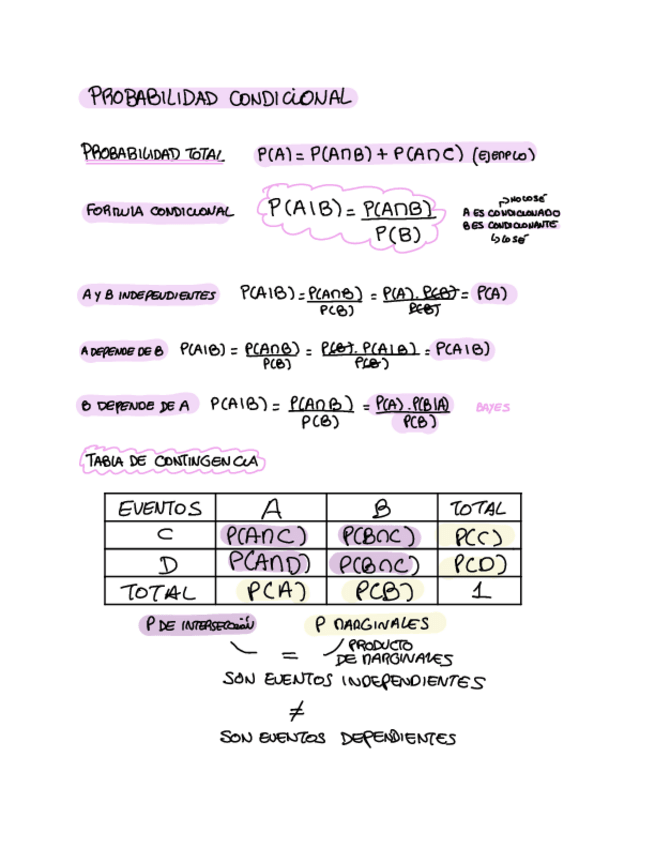 PROBABILIDAD CONDICIONAL
PROBABILIDAD TOTAL P(A) = P(A∩B) + P(A∩C) (EJEMPLO)
FORMULA CONDICIONAL P(A|B) = P(A∩B) / P(B)
↳ NO LO SÉ
A ES CONDICIONADO
B ES CONDICIONANTE
↳ LO SÉ
A Y B INDEPENDIENTES P(A|B) = P(A∩B) / P(B) = P(A) . P(B) / P(B) = P(A)
A DEPENDE DE B P(A|B) = P(A∩B) / P(B) = P(B) . P(A|B) / P(B) = P(A|B)
B DEPENDE DE A P(A|B) = P(A∩B) / P(B) = P(A) . P(B|A) / P(B) BAYES
TABLA DE CONTINGENCIA
EVENTOS A B TOTAL
C P(A∩C) P(B∩C) P(C)
D P(A∩D) P(B∩C) P(D)
TOTAL P(A) P(B) 1
P DE INTERSECCIÓN P MARGINALES
= PRODUCTO
DE MARGINALES
SON EVENTOS INDEPENDIENTES
≠
SON EVENTOS DEPENDIENTES